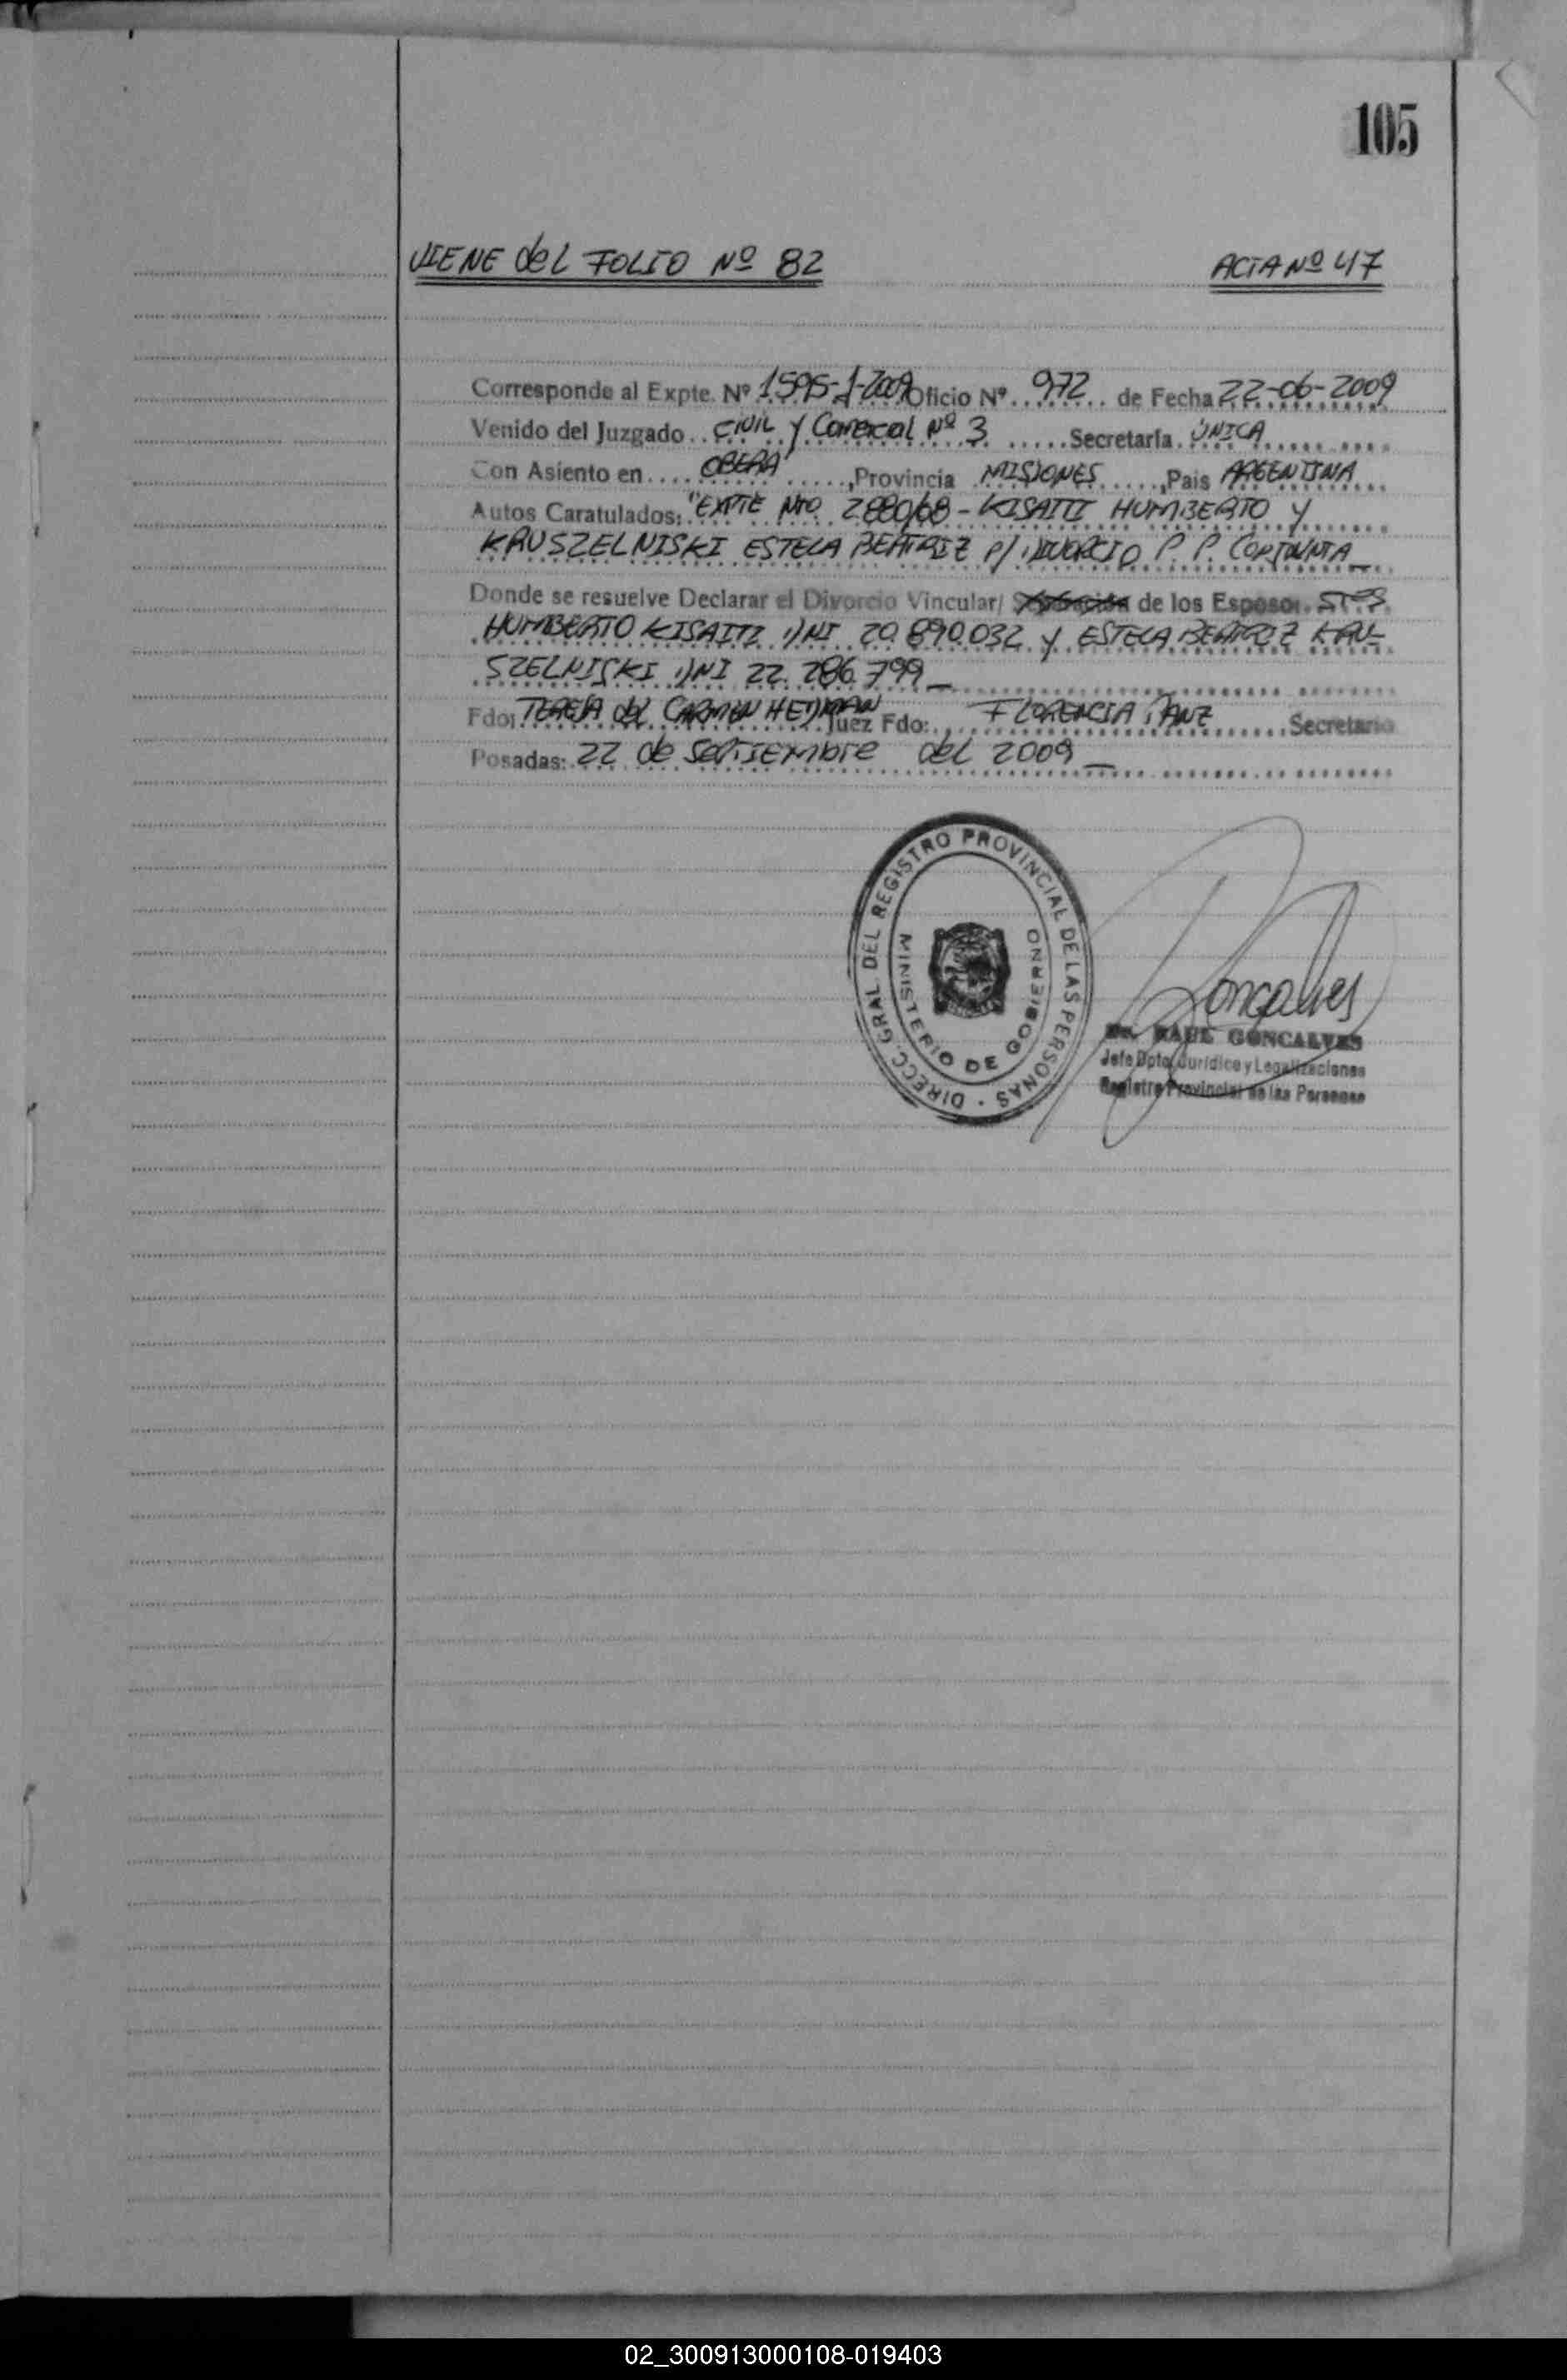 105
VIENE del FOLIO Nº 82 ACTA Nº 47
Corresponde al Expte. Nº 1595-J-2009 Oficio Nº 972 de Fecha 22-06-2009
Venido del Juzgado CIVIL Y Comercial Nº 3 Secretaría ÚNICA
Con Asiento en OBERA, Provincia MISIONES, Pais ARGENTINA
Autos Caratulados: "EXPTE Nro HUMBERTO Y
KRUSZELNISKI ESTELA BEATRIZ P/ DIVORCIO P. P. CONJUNTA
Donde se resuelve Declarar el Divorcio Vincular/ Separación de los Esposos
HUMBERTO DNI 20.890.032 Y ESTELA BEATRIZ KRU-
SZELNISKI DNI 22.286.799
Fdo: TERESA del CARMEN Juez Fdo: FLORENCIA Secretario
Posadas: 22 de SEPTIEMBRE del 2009
DIRECC. GRAL. DEL REGISTRO PROVINCIAL DE LAS PERSONAS
MINISTERIO DE GOBIERNO
Goncalves
Dr. RAUL GONCALVES
Jefe Dpto. Jurídico y Legalizaciones
Registro Provincial de las Personas
02_300913000108-019403